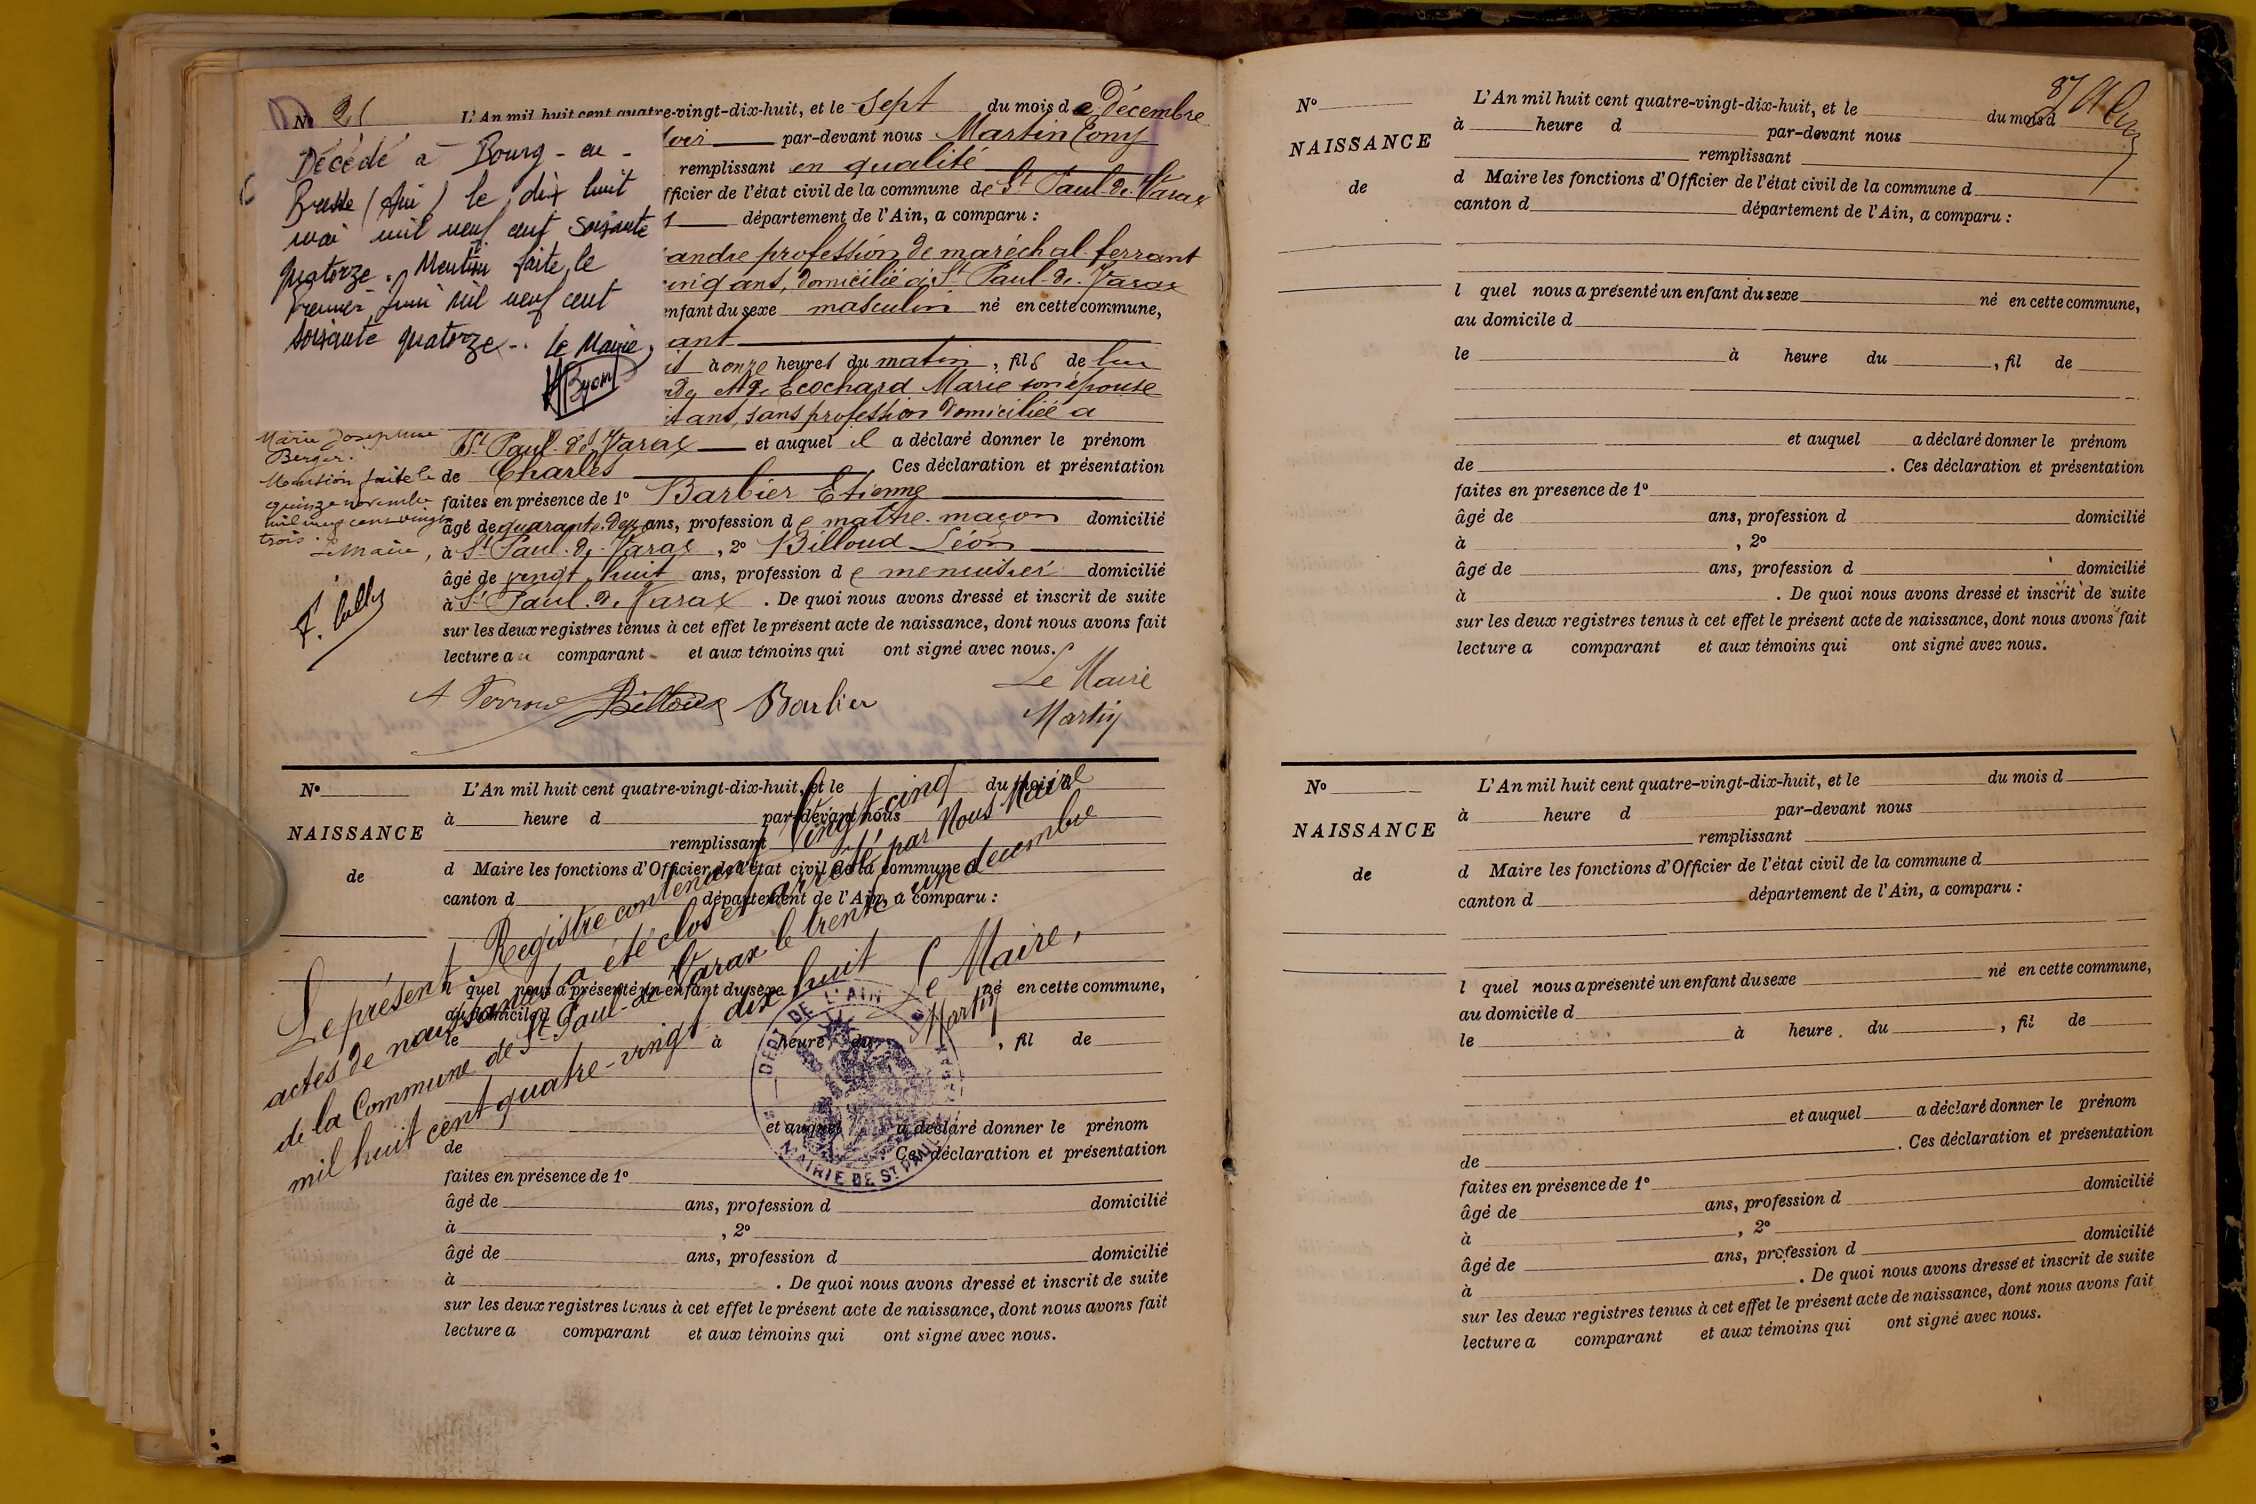 N° 25
L'An mil huit cent quatre-vingt-dix-huit, et le sept du mois de Décembre
oir par-devant nous Martin Tony
remplissant en qualité
fficier de l'état civil de la commune de St Paul-de-Varax
département de l'Ain, a comparu :
andre profession de maréchal ferrant
cinq ans, domicilié à St Paul-de-Varax
enfant du sexe masculin né en cette commune,
ant
à onze heures du matin, fils de lui
Ecochard Marie son épouse
it ans, sans profession domiciliée à
St Paul-de-Varax et auquel il a déclaré donner le prénom
de Charles Ces déclaration et présentation
faites en présence de 1° Barbier Etienne
âgé de quarante-deux ans, profession de maître-maçon domicilié
à St Paul-de-Varax, 2° Billoud Léon
âgé de vingt huit ans, profession de menuisier domicilié
à St Paul-de-Varax. De quoi nous avons dressé et inscrit de suite
sur les deux registres tenus à cet effet le présent acte de naissance, dont nous avons fait
lecture au comparant et aux témoins qui ont signé avec nous.
Le Maire
Billoud Barbier
Martin
Décédé à Bourg-en-
Bresse (Ain) le dix huit
mai mil neuf cent soixante
quatorze. Mention faite le
Premier Juin mil neuf cent
soixante quatorze. Le Maire,
Marie Joséphine
Berger.
Mention faite le
quinze novembre
mil neuf cent vingt
trois.
Le Maire,
N°
NAISSANCE
de
L'An mil huit cent quatre-vingt-dix-huit, et le du mois d
à heure d par-devant nous
remplissant
d Maire les fonctions d'Officier de l'état civil de la commune d
canton d département de l'Ain, a comparu :
l quel nous a présenté un enfant du sexe né en cette commune,
au domicile d
le à heure du , fil de
et auquel a déclaré donner le prénom
de Ces déclaration et présentation
faites en présence de 1°
âgé de ans, profession d domicilié
à , 2°
âgé de ans, profession d domicilié
à . De quoi nous avons dressé et inscrit de suite
sur les deux registres tenus à cet effet le présent acte de naissance, dont nous avons fait
lecture a comparant et aux témoins qui ont signé avec nous.
Le présent Registre contenant Vingt cinq
actes de naissances a été clos et arrêté par Nous Maire
de la Commune de St Paul-de-Varax le trente un décembre
mil huit cent quatre-vingt dix huit
Le Maire,
Martin
DEPT DE L'AIN
MAIRIE DE ST PAUL
87
N°
NAISSANCE
de
L'An mil huit cent quatre-vingt-dix-huit, et le du mois d
à heure d par-devant nous
remplissant
d Maire les fonctions d'Officier de l'état civil de la commune d
canton d département de l'Ain, a comparu :
l quel nous a présenté un enfant du sexe né en cette commune,
au domicile d
le à heure du , fil de
et auquel a déclaré donner le prénom
de . Ces déclaration et présentation
faites en presence de 1°
âgé de ans, profession d domicilié
à , 2°
âgé de ans, profession d domicilié
à . De quoi nous avons dressé et inscrit de suite
sur les deux registres tenus à cet effet le présent acte de naissance, dont nous avons fait
lecture a comparant et aux témoins qui ont signé avec nous.
N°
NAISSANCE
de
L'An mil huit cent quatre-vingt-dix-huit, et le du mois d
à heure d par-devant nous
remplissant
d Maire les fonctions d'Officier de l'état civil de la commune d
canton d département de l'Ain, a comparu :
l quel nous a présenté un enfant du sexe né en cette commune,
au domicile d
le à heure du , fil de
et auquel a déclaré donner le prénom
de . Ces déclaration et présentation
faites en présence de 1°
âgé de ans, profession d domicilié
à , 2°
âgé de ans, profession d domicilié
à . De quoi nous avons dressé et inscrit de suite
sur les deux registres tenus à cet effet le présent acte de naissance, dont nous avons fait
lecture a comparant et aux témoins qui ont signé avec nous.